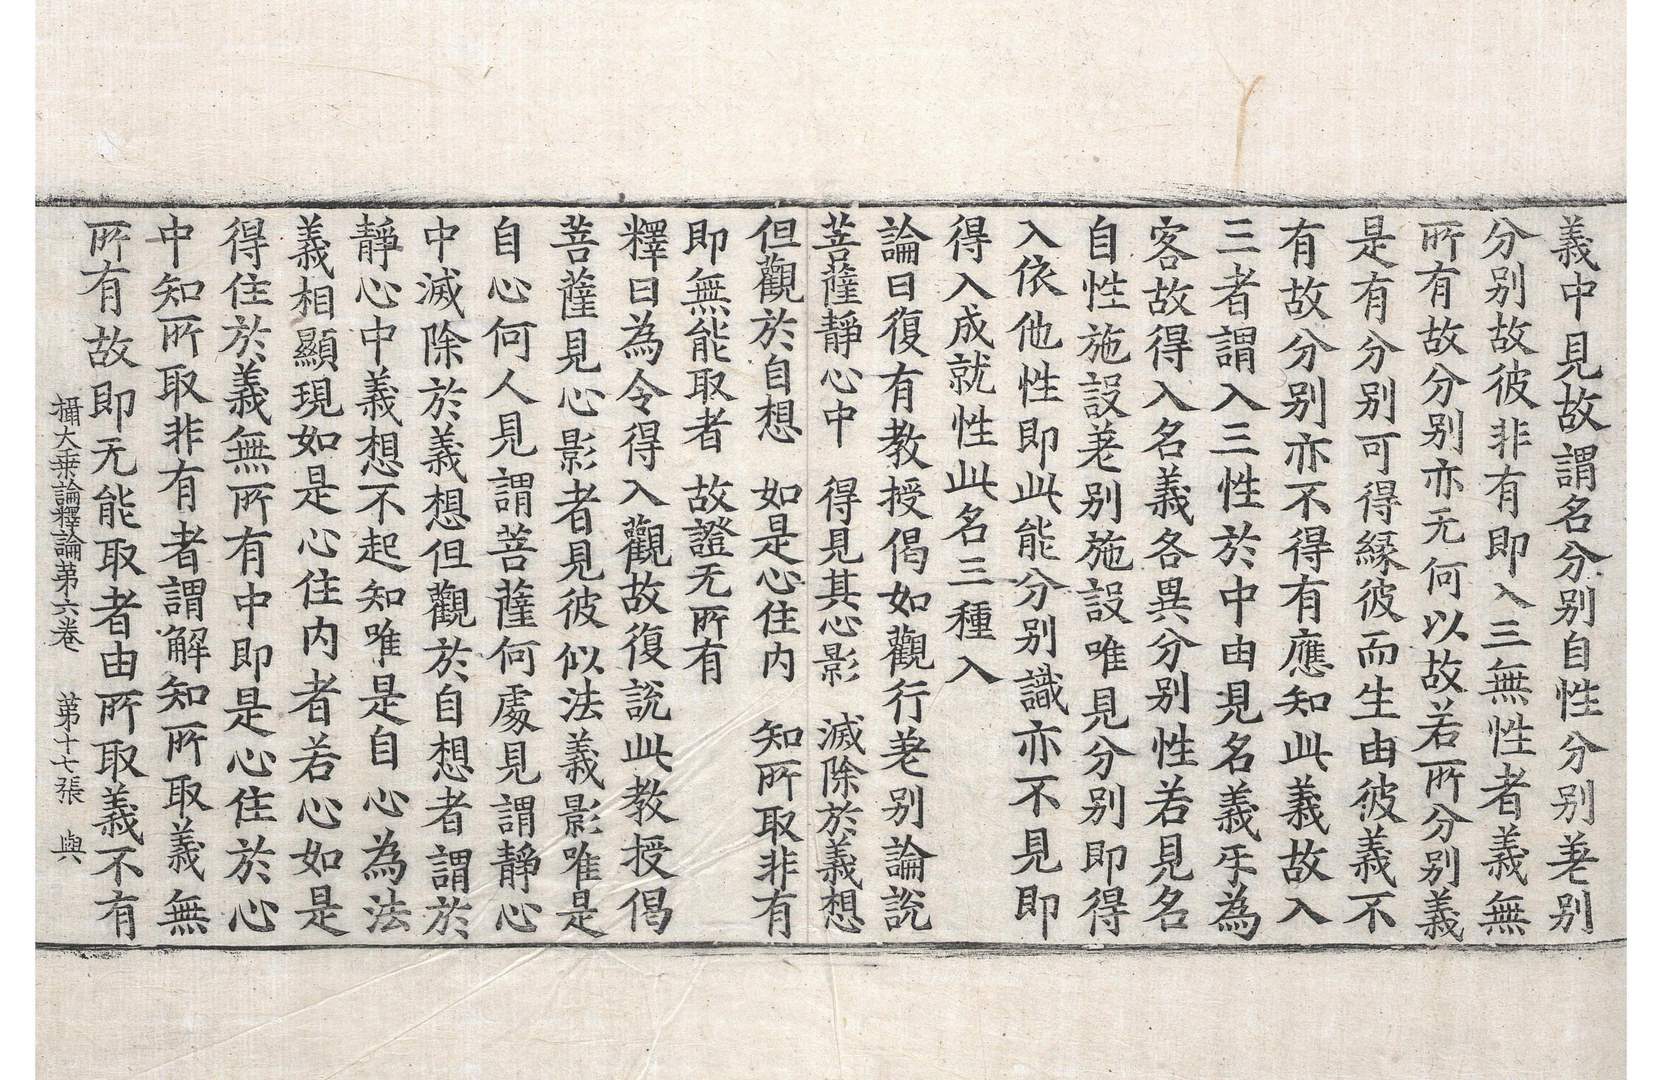 義中見故謂名分別自性分別差別
分別故彼非有即入三無性者義無
所有故分別亦无何以故若所分別義
是有分別可得緣彼而生由彼義不
有故分別亦不得有應知此義故入
三者謂入三性於中由見名義互為
客故得入名義各異分別性若見名
自性施設差別施設唯見分別即得
入依他性即此能分別識亦不見即
得入成就性此名三種入
論曰復有教授偈如觀行差別論說
菩薩靜心中 得見其心影 滅除於義想
但觀於自想 如是心住內 知所取非有
即無能取者 故證无所有
釋曰為令得入觀故復說此教授偈
菩薩見心影者見彼似法義影唯是
自心何人見謂菩薩何處見謂靜心
中滅除於義想但觀於自想者謂於
靜心中義想不起知唯是自心為法
義相顯現如是心住內者若心如是
得住於義無所有中即是心住於心
中知所取非有者謂解知所取義無
所有故即无能取者由所取義不有
攝大乘論釋論第六卷 第十七張 與